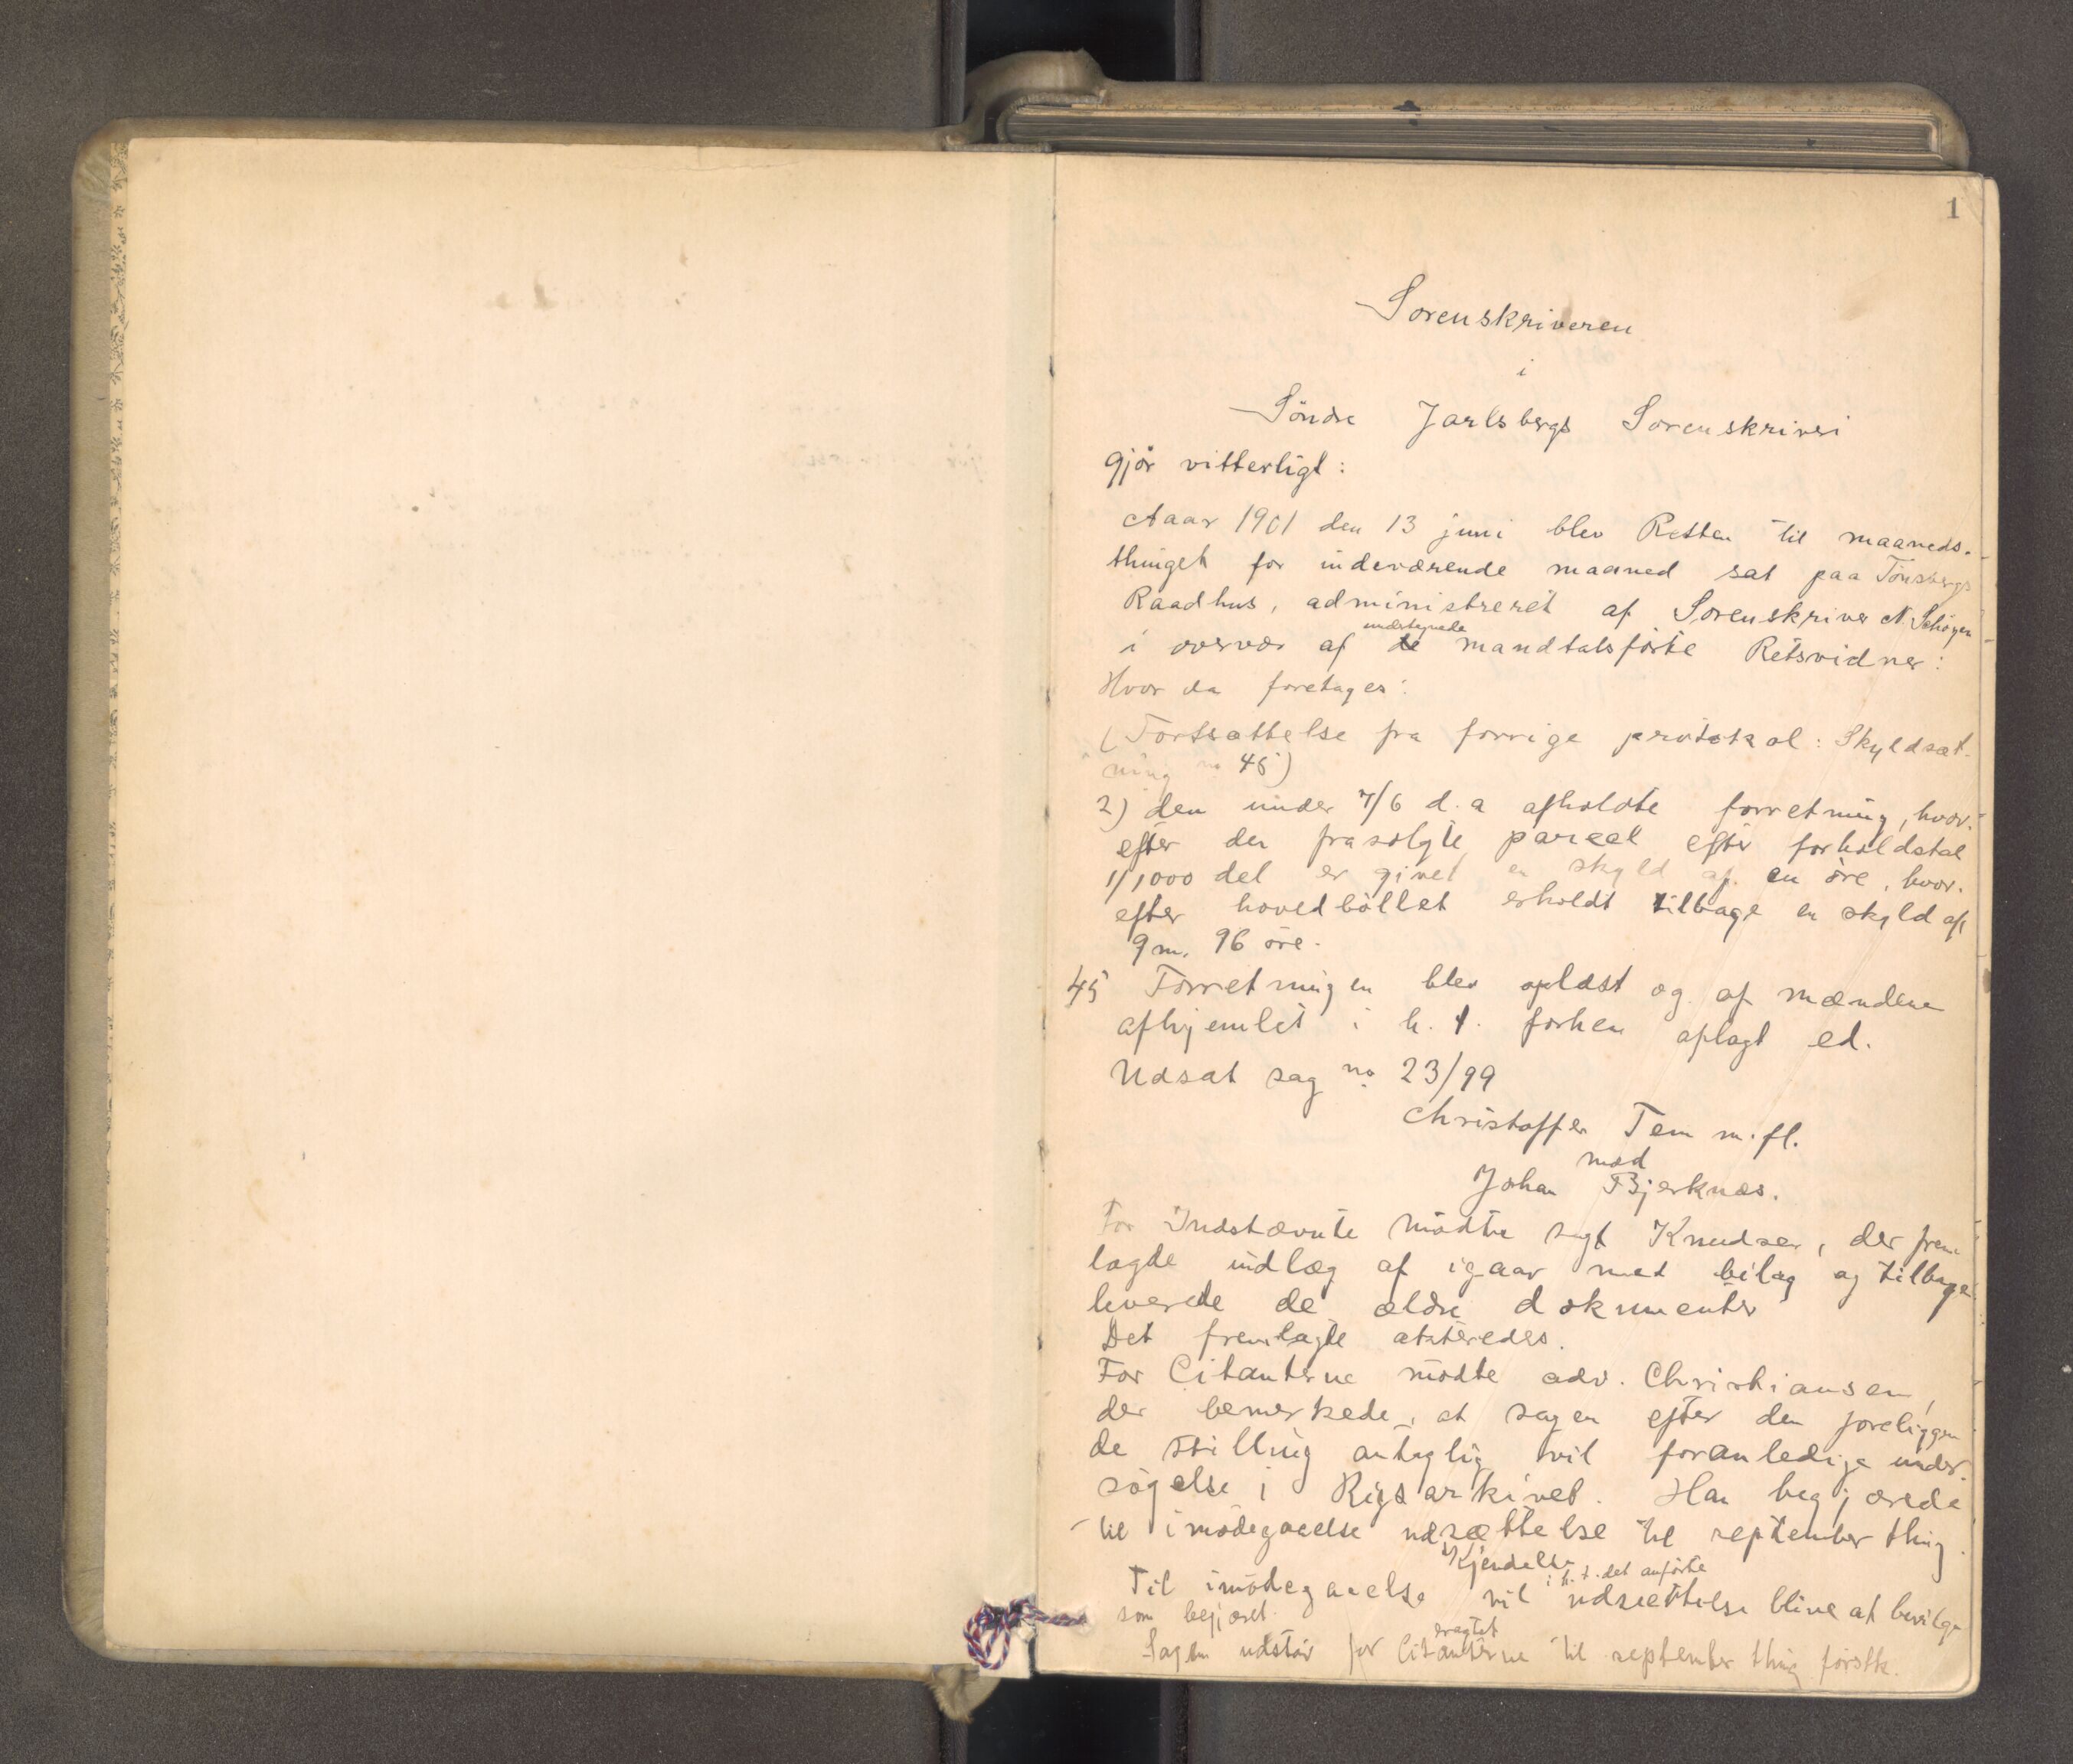 1
Sorenskriveren
i
Söndre Jarlsbergs Sorenskriveri
gjör vitterligt:
Aaar 1901 den 13 juni blev Retten til maaneds-
thinget for indeværende maaned sat paa Tönsbergs
Raadhus, administreret af Sorenskriver N. Schöyen
undertegnede
i overvær af de mandtalsförte Retsvidner:
Hvor da foretages:
(Fortsættelse fra forrige protokol: Skyldsæt-
ning no 45)
2) den under 7/6 d.a afholdte forretning, hvor-
efter den frasolgte parcel efter forholdstal
1/1000 del er givet en skyld af en öre, hvor-
efter hovedböllet erholdt tilbage en skyld af
9 m. 96 öre.
45 Forretningen blev oplæst og af mændene
afhjemlet i h. t. forhen aflagt ed.
Udsat sag no 23/99
Christoffer Tem m.fl.
mod
Johan Bjerknæs.
For Indstævnte mödte sagf Knudsen, der frem-
lagde indlæg af igaar med bilag og tilbage-
leverede de ældre dokumenter
Det fremlagte akteredes.
For Citanterne mödte adv. Christiansen,
der bemerkede, at sagen efter den foreliggen-
de stilling antaglig vil foranledige under-
sögelse i Rigsarkivet. Han begjærede
til imödegaaelse udsættelse til september thing.
Kjendelse
i h. t. det anförte
Til imödegaaelse vil udsættelse blive at bevilge
som begjæret.
eragtet
Sagen udstår for Citanterne til september thing förstk.